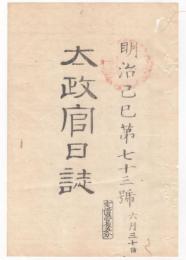 明治己巳第七十三號
六月三十日
太政官日誌